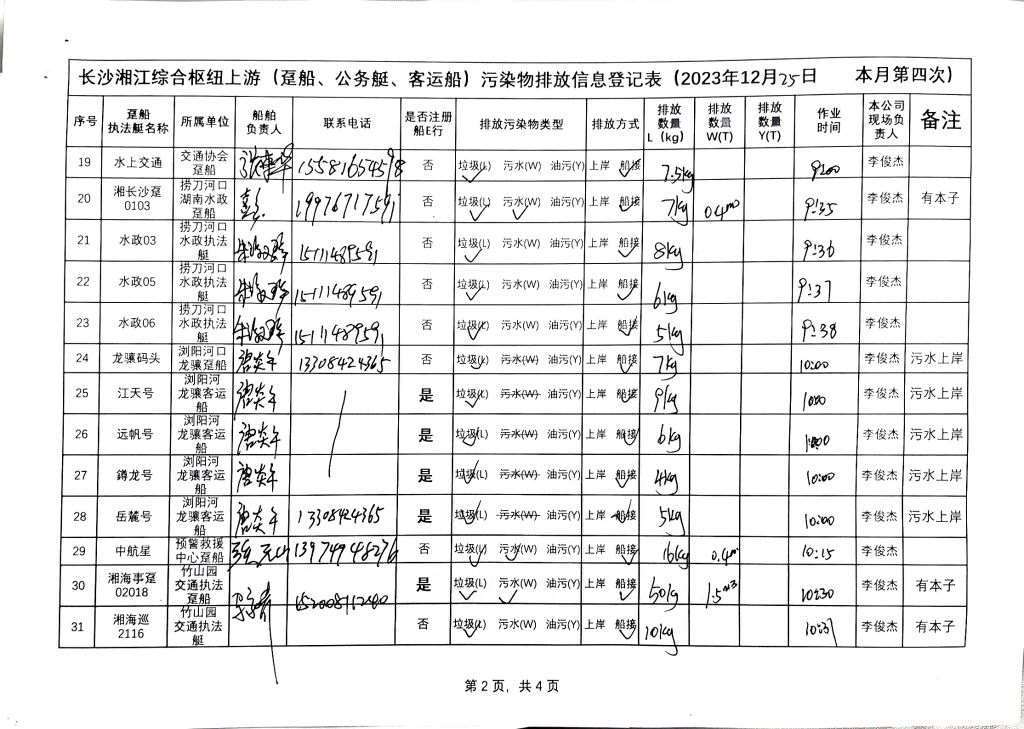 长沙湘江综合枢纽上游（趸船、公务艇、客运船）污染物排放信息登记表（2023年12月25日 本月第四次）
序号 趸船执法艇名称 所属单位 船舶负责人 联系电话 是否注册船E行 排放污染物类型 排放方式 排放数量L（kg） 排放数量W(T) 排放数量Y(T) 作业时间 本公司现场负责人 备注
19 水上交通 交通协会趸船 15581654598 否 垃圾(L) 污水(W) 油污(Y) 上岸 船接 7.5kg 9:00 李俊杰
20 湘长沙趸0103 捞刀河口湖南水政趸船 19976717591 否 垃圾(L) 污水(W) 油污(Y) 上岸 船接 7kg 0.4m³ 9:35 李俊杰 有本子
21 水政03 捞刀河口水政执法艇 15111489591 否 垃圾(L) 污水(W) 油污(Y) 上岸 船接 8kg 9:36 李俊杰
22 水政05 捞刀河口水政执法艇 15111489591 否 垃圾(L) 污水(W) 油污(Y) 上岸 船接 6kg 9:37 李俊杰
23 水政06 捞刀河口水政执法艇 15111489591 否 垃圾(L) 污水(W) 油污(Y) 上岸 船接 5kg 9:38 李俊杰
24 龙骧码头 浏阳河口龙骧趸船 13308424365 否 垃圾(L) 污水(W) 油污(Y) 上岸 船接 7kg 10:00 李俊杰 污水上岸
25 江天号 浏阳河龙骧客运船 是 垃圾(L) 污水(W) 油污(Y) 上岸 船接 9kg 10:00 李俊杰 污水上岸
26 远帆号 浏阳河龙骧客运船 是 垃圾(L) 污水(W) 油污(Y) 上岸 船接 6kg 10:00 李俊杰 污水上岸
27 鐏龙号 浏阳河龙骧客运船 是 垃圾(L) 污水(W) 油污(Y) 上岸 船接 4kg 10:00 李俊杰 污水上岸
28 岳麓号 浏阳河龙骧客运船 13308424365 是 垃圾(L) 污水(W) 油污(Y) 上岸 船接 5kg 10:00 李俊杰 污水上岸
29 中航星 预警救援中心趸船 13974948276 否 垃圾(L) 污水(W) 油污(Y) 上岸 船接 16kg 0.4m³ 10:15 李俊杰
30 湘海事趸02018 竹山园交通执法趸船 是 垃圾(L) 污水(W) 油污(Y) 上岸 船接 50kg 1.5m³ 10:30 李俊杰 有本子
31 湘海巡2116 竹山园交通执法艇 否 垃圾(L) 污水(W) 油污(Y) 上岸 船接 10kg 10:37 李俊杰 有本子
第 2 页，共 4 页